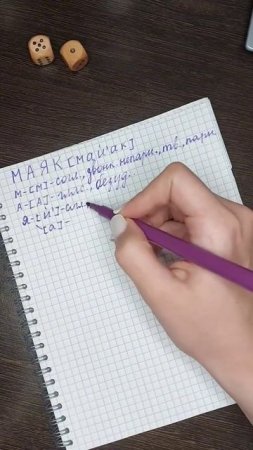 МАЯК [май'ак]
М-[м]-согл., звонк. непарн., тв., парн.
А-[А]-глас. безуд.
Я-[й']-согл.
[а]-